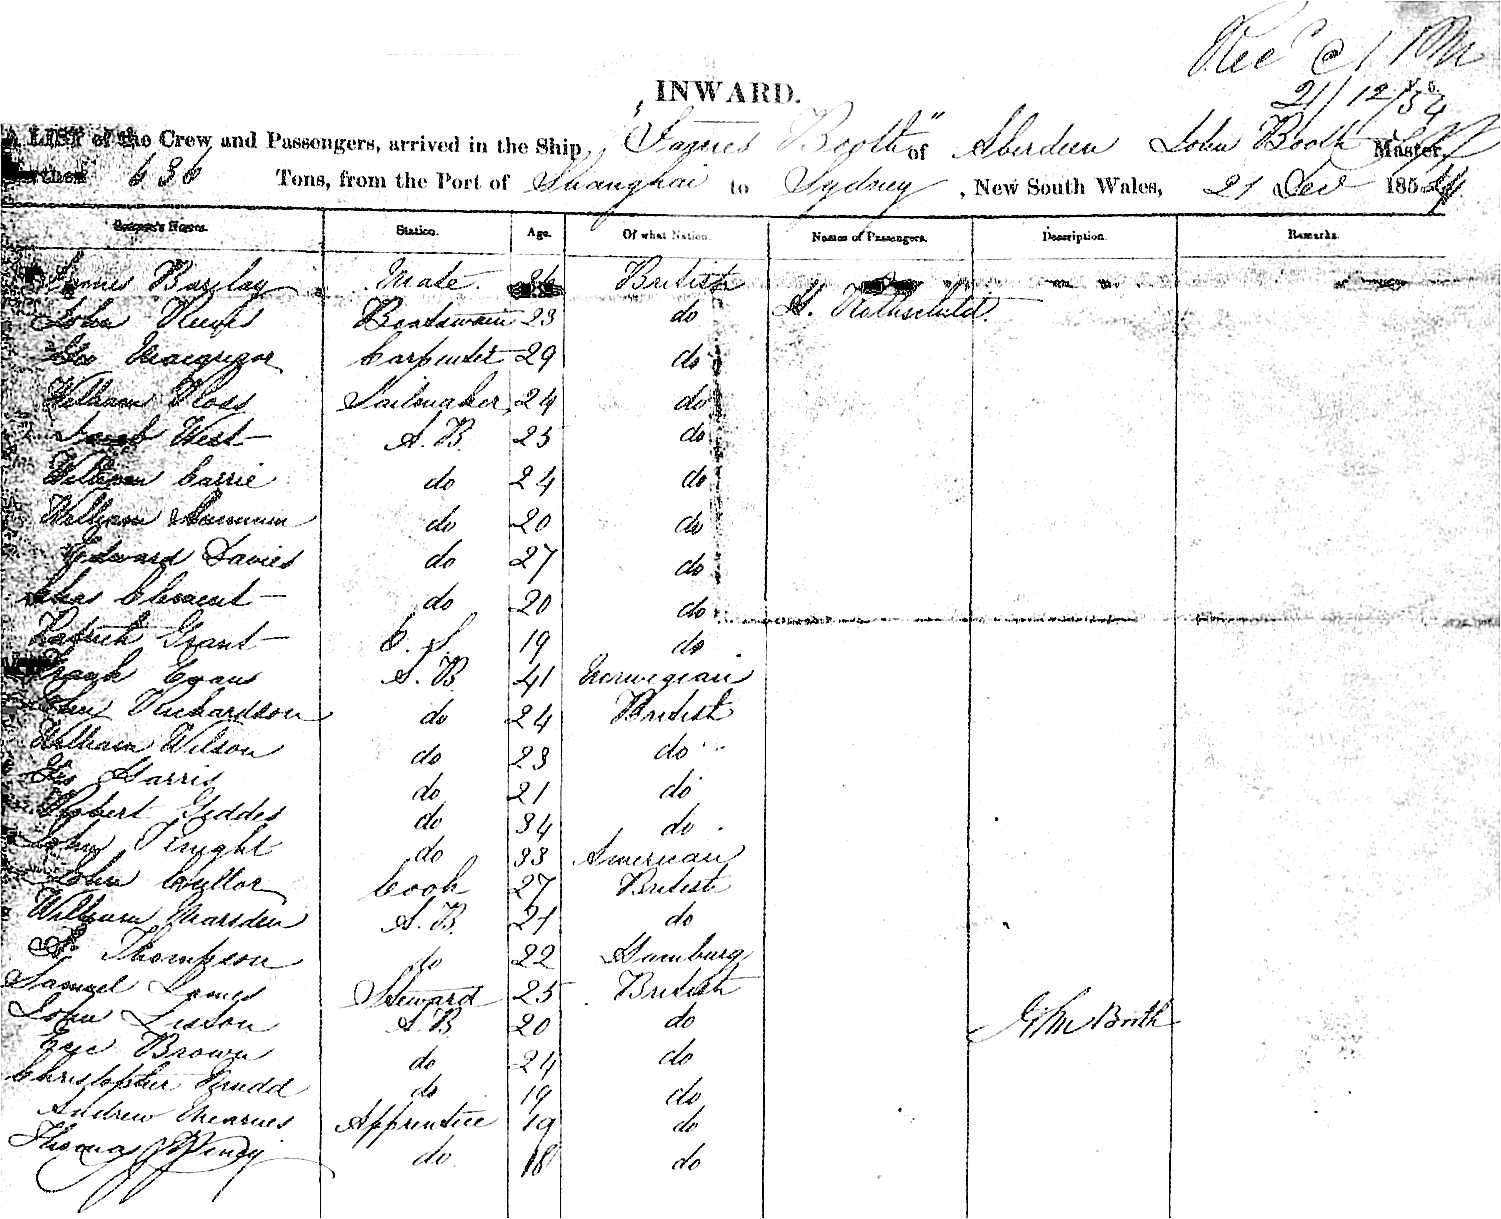 Rec
21/12/54
INWARD.
A LIST of the Crew and Passengers, arrived in the Ship "James Booth" of Aberdeen John Booth Master,
Burthen 636 Tons, from the Port of Shanghai to Sydney, New South Wales, 21 Dec 1854
Seamen's Names. Station. Age. Of what Nation. Names of Passengers. Description. Remarks.
James Barclay Mate British
John Reeves Boatswain 23 do A. Rothschild
Geo Macgregor Carpenter 29 do
William Ross Sailmaker 24 do
Jacob West A.B. 25 do
William Carrie do 24 do
William do 20 do
Edward Davies do 27 do
Chas Clement do 20 do
Patrick Grant O.S. 19 do
Frank Evans A.B. 41 Norwegian
John Richardson do 24 British
William Wilson do 23 do
Harris do 21 do
Robert Geddes do 34 do
John do 33 American
John Cook 27 British
William Marsden A.B. 21 do
Thompson do 22 Hamburg
Samuel James Steward 25 British
John A.B. 20 do John Booth
Brown do 24 do
Christopher Rudd do 19 do
Andrew Mearnes Apprentice 19 do
Thomas do 18 do